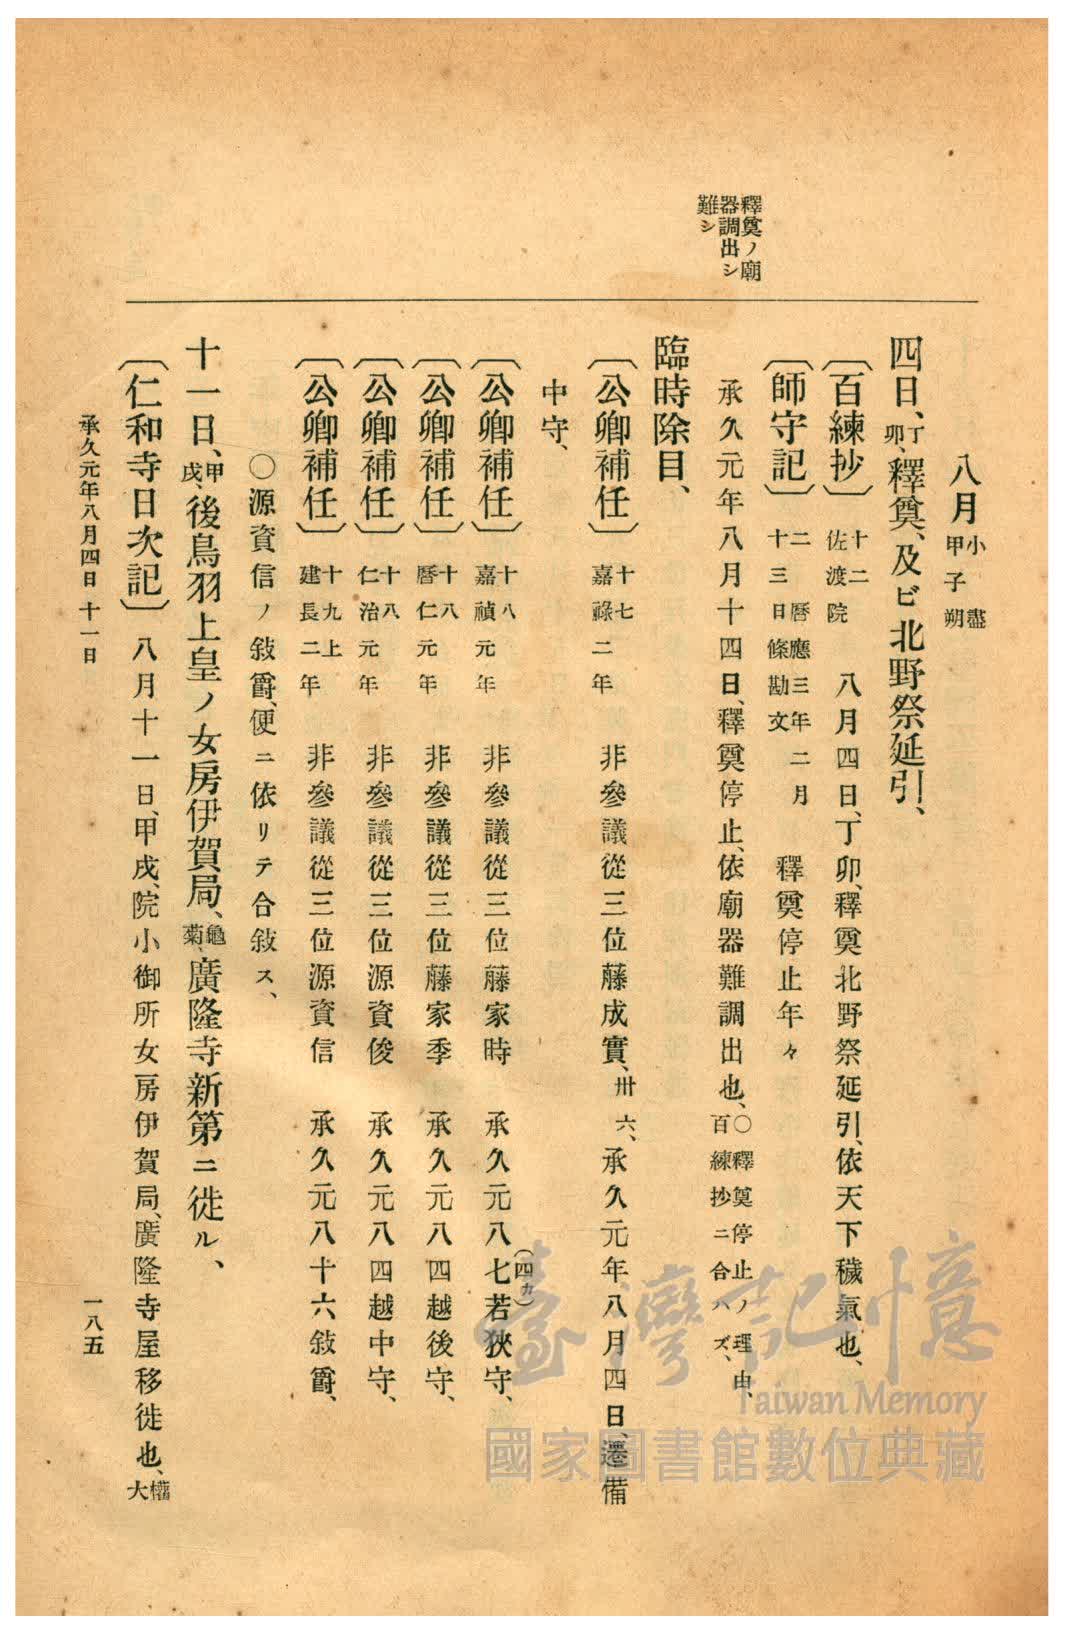 釋奠ノ廟
器調出シ
難シ
八月小盡甲子朔
四日、丁卯、釋奠、及ビ北野祭延引、
〔百練抄〕十二佐渡院 八月四日、丁卯、釋奠北野祭延引、依天下穢氣也、
〔師守記〕二曆應三年二月十三日條勘文 釋奠停止年々
承久元年八月十四日、釋奠停止、依廟器難調出也、○釋奠停止ノ理由、百練抄ニ合ハズ、
臨時除目、
〔公卿補任〕十七嘉祿二年 非參議從三位藤成實、卅六、承久元年八月四日、遷備
中守、
〔公卿補任〕十八嘉禎元年 非參議從三位藤家時 承久元八七(四カ)若狹守、
〔公卿補任〕十八曆仁元年 非參議從三位藤家季 承久元八四越後守、
〔公卿補任〕十八仁治元年 非參議從三位源資俊 承久元八四越中守、
〔公卿補任〕十九上建長二年 非參議從三位源資信 承久元八十六敍爵、
○源資信ノ敍爵、便ニ依リテ合敍ス、
十一日、甲戌、後鳥羽上皇ノ女房伊賀局、龜菊、廣隆寺新第ニ徙ル、
〔仁和寺日次記〕八月十一日、甲戌、院小御所女房伊賀局、廣隆寺屋移徙也、權大
承久元年八月四日 十一日
一八五
臺灣記憶
Taiwan Memory
國家圖書館數位典藏